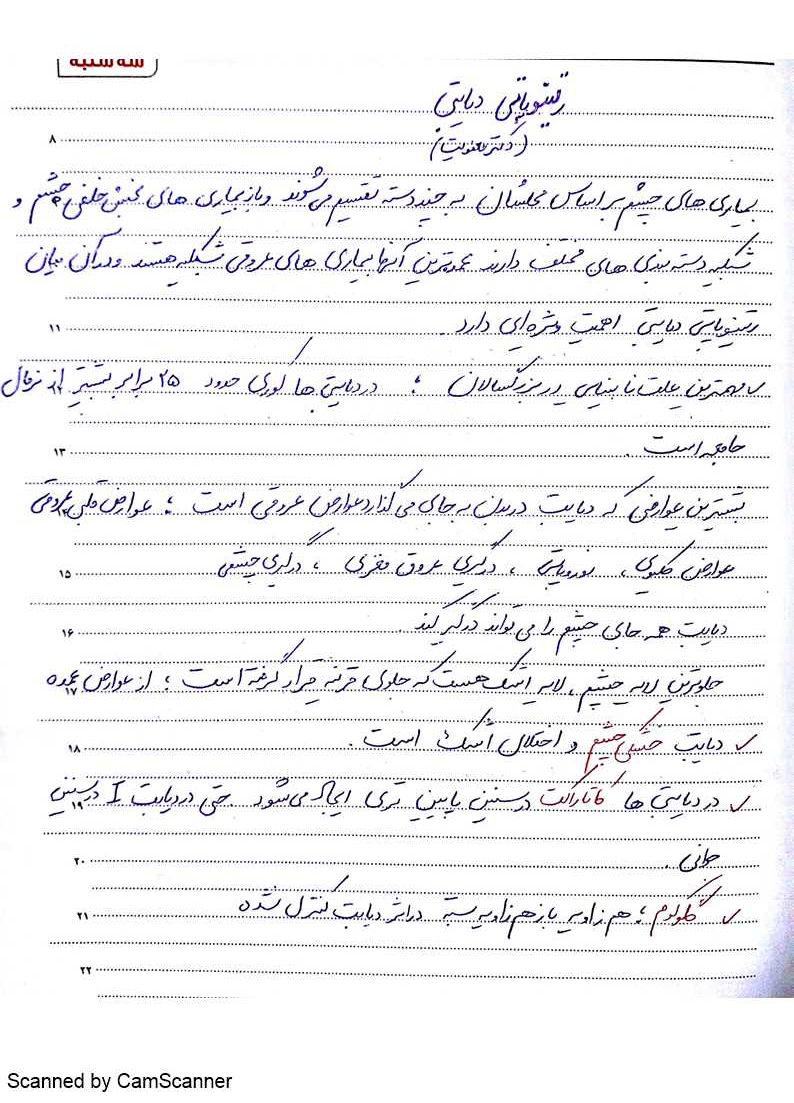 سه شنبه
رتینوپاتی دیابتی
۸
بیماری های چشم بر اساس محلشان به چند دسته تقسیم می شوند و باز بیماری های بخش خلفی چشم و
شبکیه دسته بندی های مختلف دارند عمده ترین آنها بیماری های عروقی شبکیه هستند و در آن میان
رتینوپاتی دیابتی اهمیت ویژه ای دارد.
۱۱
✓ مهمترین علت نابینایی در بزرگسالان ؛ در دیابتی ها کوری حدود ۲۵ برابر بیشتر از نرمال
جامعه است.
۱۳
بیشترین عوارضی که دیابت در بدن به جای می گذارد عوارض عروقی است ؛ عوارض قلبی عروقی
عوارض کلیوی، نوروپاتی، درگیری عروق مغزی، درگیری چشمی
۱۵
دیابت همه جای چشم را می تواند درگیر کند.
۱۶
جلوترین لایه چشم، لایه اشک هست که جلوی قرنیه قرار گرفته است ؛ از عوارض عمده
۱۷
✓ دیابت خشکی چشم و اختلال اشک است.
۱۸
✓ در دیابتی ها کاتاراکت در سنین پایین تری ایجاد می شود. حتی در دیابت I در سنین
۱۹
جوانی.
۲۰
✓ گلوکوم ؛ هم زاویه باز هم زاویه بسته در اثر دیابت کنترل نشده
۲۱
۲۲
Scanned by CamScanner